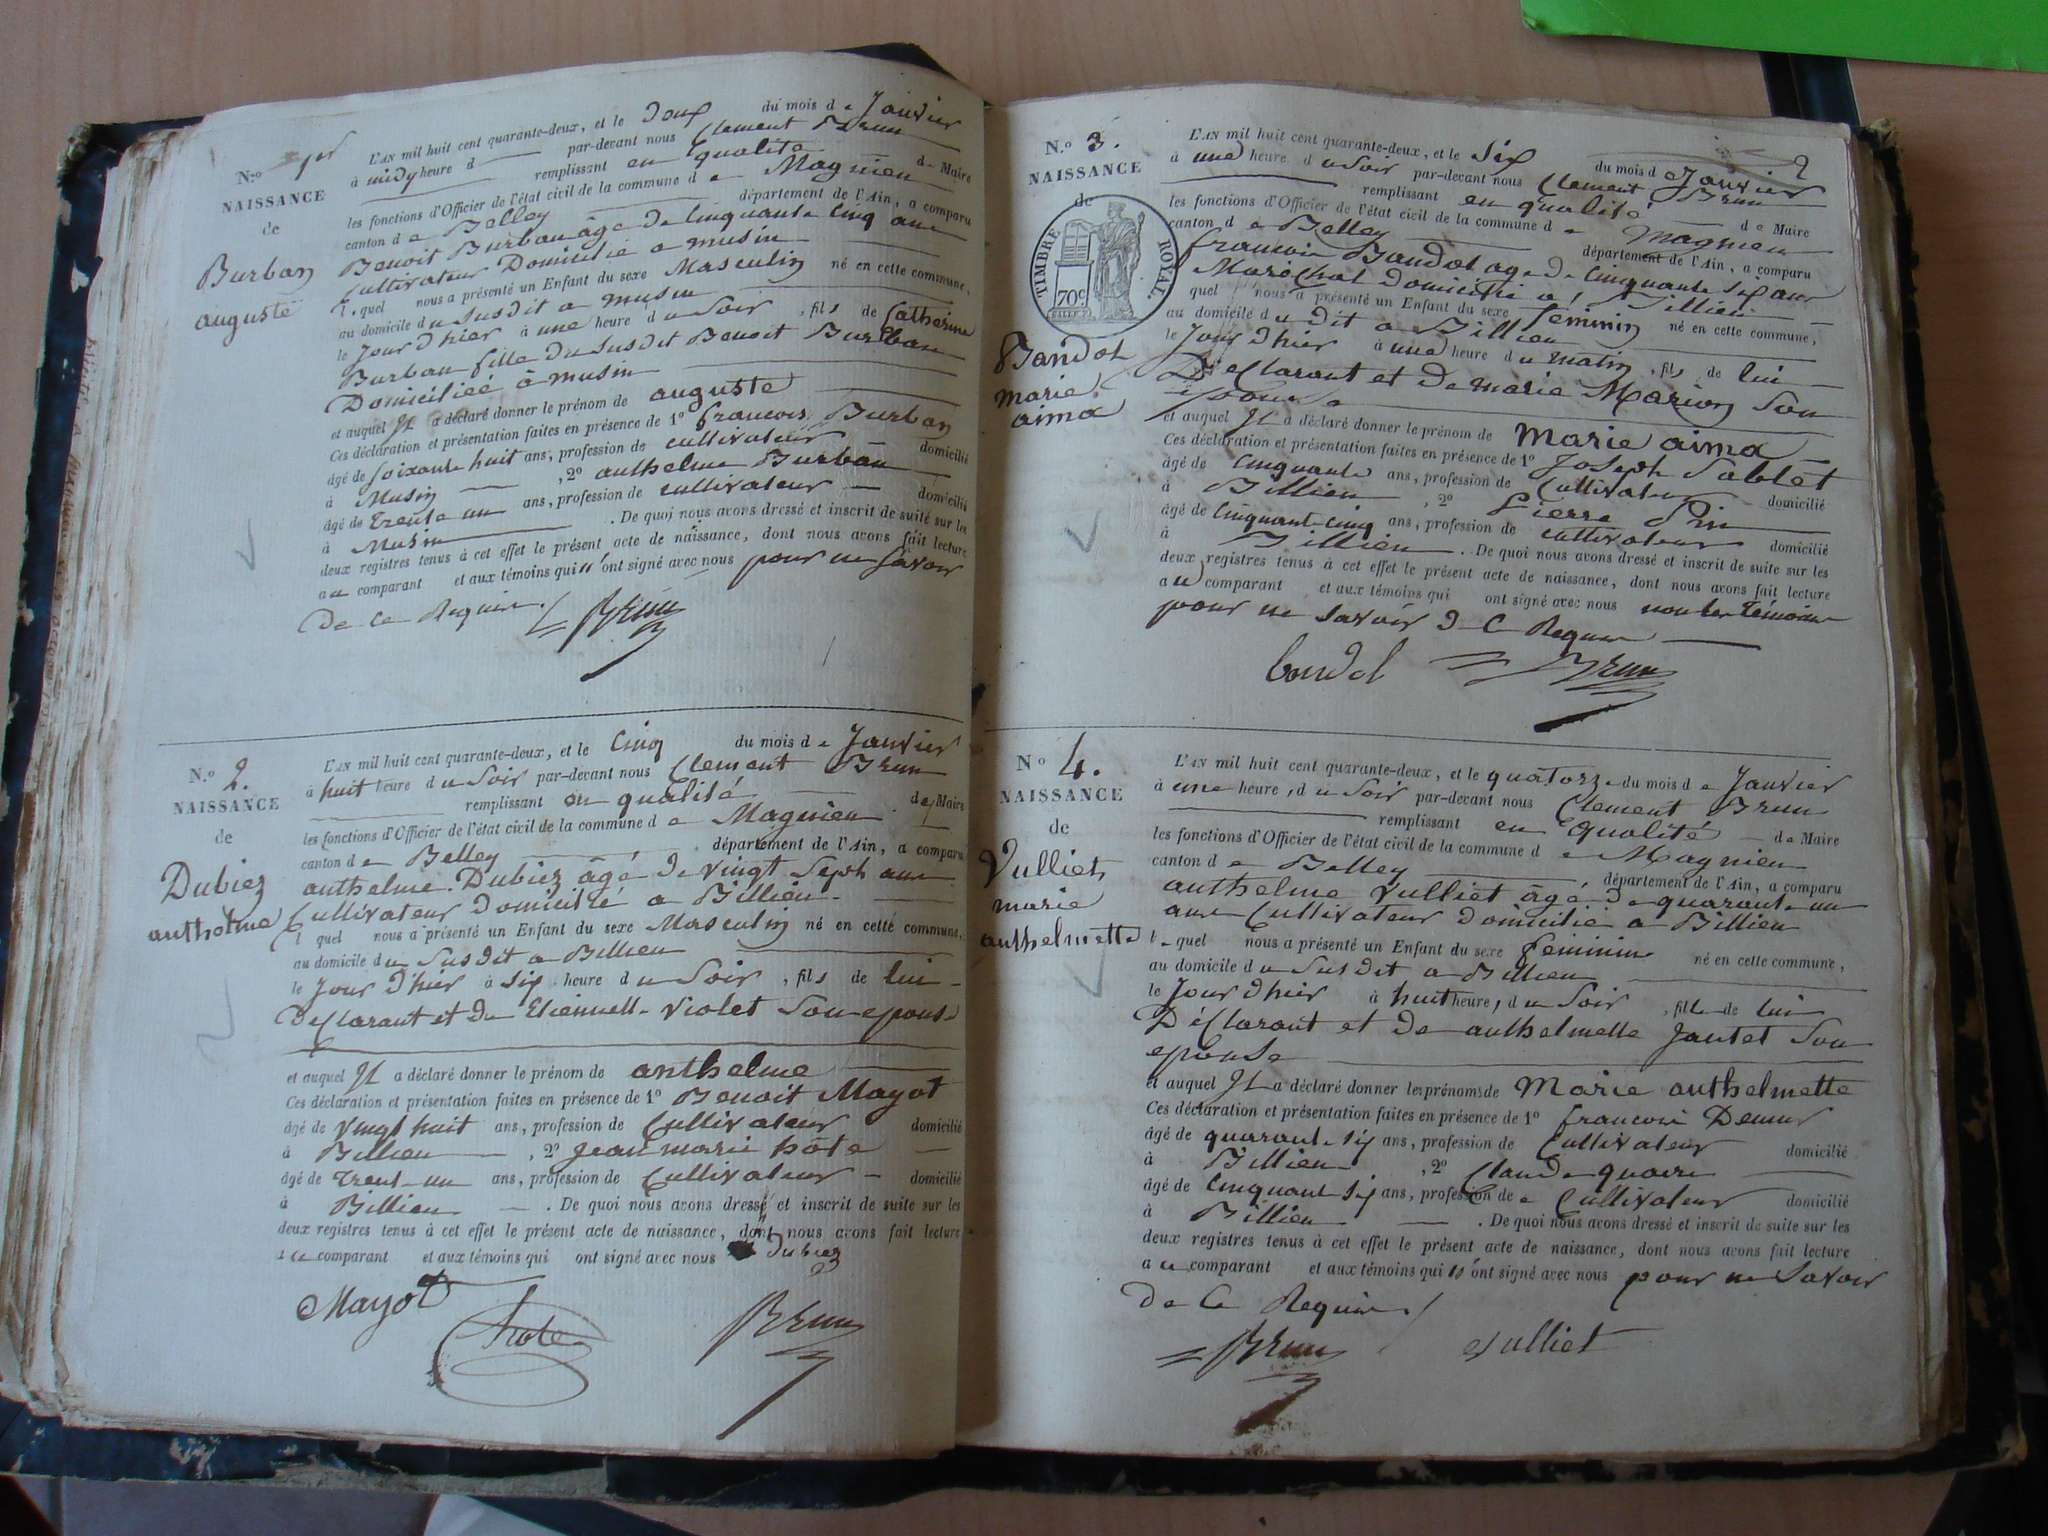 N.o 1er
NAISSANCE
de
Burban
auguste
L'AN mil huit cent quarante-deux, et le Deux du mois de Janvier
à midy heure d par-devant nous Clement Brun
remplissant en qualité de Maire
les fonctions d'Officier de l'état civil de la commune de Magnieu
canton de Belley département de l'Ain, a comparu
Benoit Burban âgé de Cinquante Cinq ans
Cultivateur Domicilié a musin
lequel nous a présenté un Enfant du sexe Masculin né en cette commune,
au domicile du Susdit a musin
le Jour d'hier à une heure du Soir, fils de Catherine
Burban fille du Susdit Benoit Burban
Domiciliée à musin
et auquel Il a déclaré donner le prénom de auguste
Ces déclaration et présentation faites en présence de 1o francois Burban
âgé de Soixante huit ans, profession de cultivateur domicilié
à Musin , 2o anthelme Burban
âgé de trente un ans, profession de cultivateur domicilié
à Musin . De quoi nous avons dressé et inscrit de suite sur les
deux registres tenus à cet effet le présent acte de naissance, dont nous avons fait lecture
au comparant et aux témoins qui n'ont signé avec nous pour ne Savoir
De Ce Requis. Brun
N.o 2.
NAISSANCE
de
Dubiez
anthelme
L'AN mil huit cent quarante-deux, et le Cinq du mois de Janvier
à huit heure du Soir par-devant nous Clement Brun
remplissant en qualité de Maire
les fonctions d'Officier de l'état civil de la commune de Magnieu
canton de Belley département de l'Ain, a comparu
anthelme Dubiez âgé De vingt Sept ans
Cultivateur domicilié a Billieu
lequel nous a présenté un Enfant du sexe Masculin né en cette commune,
au domicile du Susdit a Billieu
le Jour d'hier à six heure du Soir, fils de lui
Déclarant et de Etiennette Violet Son epouse
et auquel Il a déclaré donner le prénom de anthelme
Ces déclaration et présentation faites en présence de 1o Benoit Mayot
âgé de vingt huit ans, profession de Cultivateur domicilié
à Billieu , 2o Jean marie hôte
âgé de trente un ans, profession de Cultivateur domicilié
à Billieu . De quoi nous avons dressé et inscrit de suite sur les
deux registres tenus à cet effet le présent acte de naissance, dont nous avons fait lecture
au comparant et aux témoins qui ont signé avec nous Dubiez
Mayot hote Brun
2
N.o 3.
NAISSANCE
de
TIMBRE ROYAL.
70c
Bandot
marie
aima
L'AN mil huit cent quarante-deux, et le Six du mois de Janvier
à une heure du Soir par-devant nous Clement Brun
remplissant en qualité de Maire
les fonctions d'Officier de l'état civil de la commune de Magnieu
canton de Belley département de l'Ain, a comparu
francois Bandot age De Cinquante Six ans
Maréchal domicilié a Billieu
quel nous a présenté un Enfant du sexe feminin né en cette commune,
au domicile du dit a Billieu
le Jour d'hier à une heure du matin, fils de lui
Déclarant et de marie Marion Son
Epouse
et auquel Il a déclaré donner le prénom de Marie aima
Ces déclaration et présentation faites en présence de 1o Joseph Sablet
âgé de Cinquante ans, profession de Cultivateur domicilié
à Billieu , 2o Pierre Pin
âgé de Cinquante-cinq ans, profession de cultivateur domicilié
à Billieu . De quoi nous avons dressé et inscrit de suite sur les
deux registres tenus à cet effet le présent acte de naissance, dont nous avons fait lecture
au comparant et aux témoins qui ont signé avec nous non les témoins
pour ne savoir De Ce Requis
bandot Brun
No 4.
NAISSANCE
de
Vulliet
marie
anthelmette
L'AN mil huit cent quarante-deux, et le quatorze du mois de Janvier
à une heure, du Soir par-devant nous Clement Brun
remplissant en qualité de Maire
les fonctions d'Officier de l'état civil de la commune de Magnieu
canton de Belley département de l'Ain, a comparu
anthelme Vulliet âgé de quarante un
ans Cultivateur domicilié a Billieu
lequel nous a présenté un Enfant du sexe feminin né en cette commune,
au domicile du Susdit a Billieu
le Jour d'hier à huit heure, du Soir, fille de lui
Déclarant et De anthelmette Jantet Son
epouse
et auquel Il a déclaré donner les prénoms de Marie anthelmette
Ces déclaration et présentation faites en présence de 1o francois Demur
âgé de quarante six ans, profession de Cultivateur domicilié
à Billieu , 2o Claude
âgé de Cinquante Six ans, profession de Cultivateur domicilié
à Billieu . De quoi nous avons dressé et inscrit de suite sur les
deux registres tenus à cet effet le présent acte de naissance, dont nous avons fait lecture
au comparant et aux témoins qui n'ont signé avec nous pour ne Savoir
De Ce Requis
Brun Vulliet